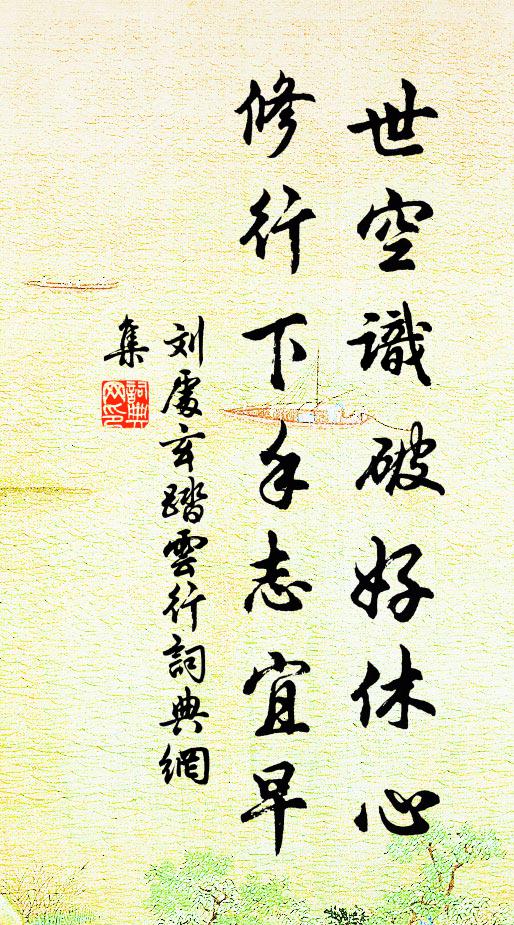 世空識破好休心
修行下手志宜早
刘處玄踏雲行詞典網
集
詞典
网印